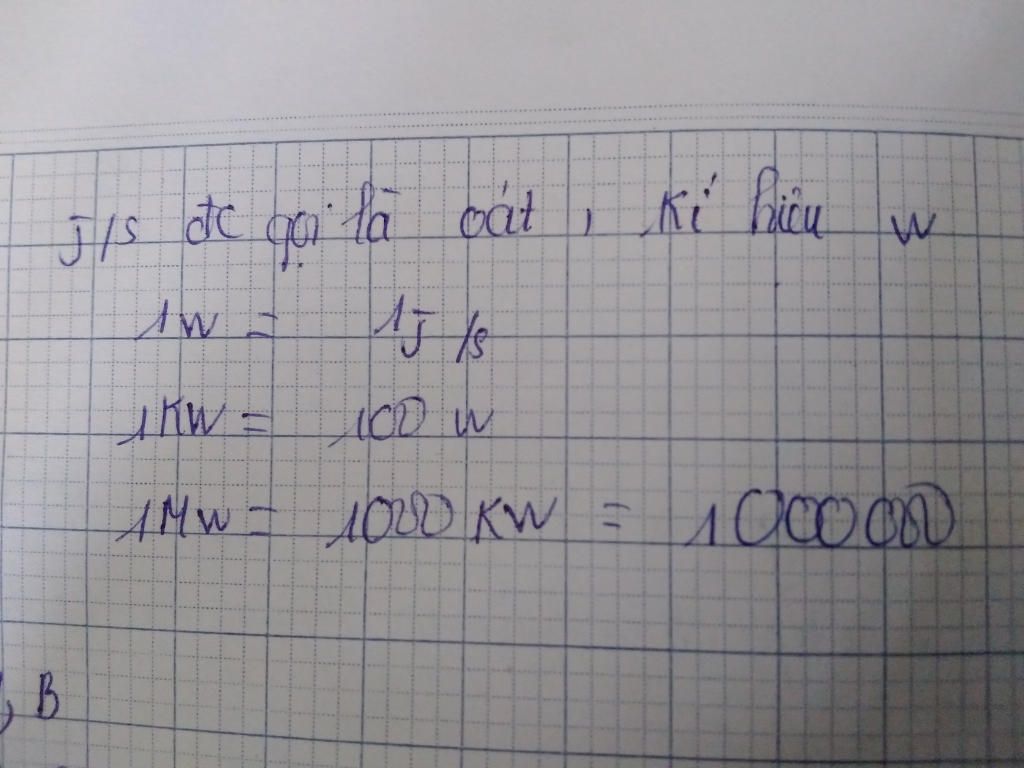 J/s đc gọi là oát, kí hiệu w
1w = 1J/s
1KW = 100 w
1Mw = 1000 KW = 1000000
, B